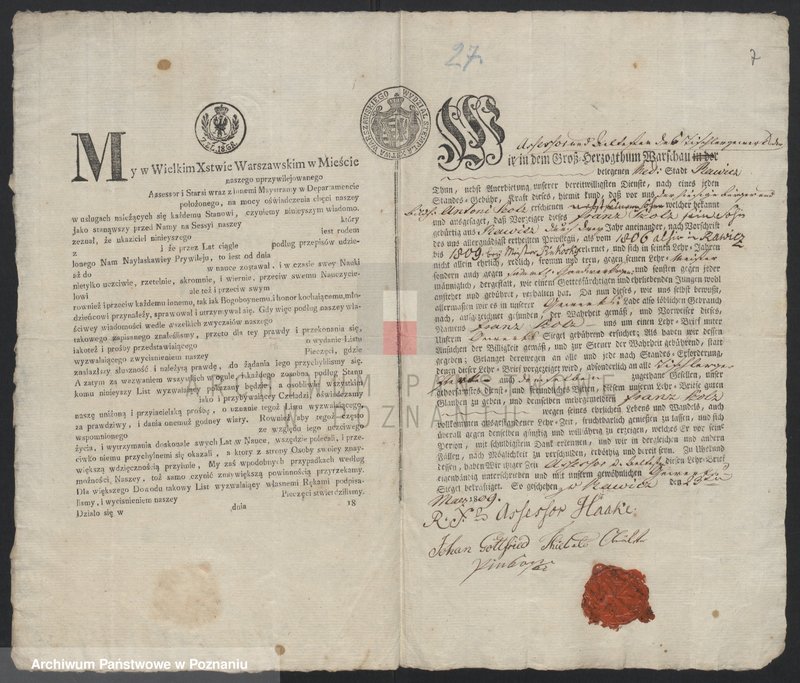 27.
7
WYDZIAŁ STEMPLA
XSTWA WARSZAWSKIEGO
My w Wielkim Xstwie Warszawskim w Mieście
naszego uprzywilejowanego
Assessor i Starsi wraz z innemi Maystrami w Departamencie
położonego, na mocy oświadczenia chęci naszey
w usługach należących się każdemu Stanowi, czyniemy ninieyszym wiadomo.
Jako stanąwszy przed Namy na Sessyi naszey który
zeznał, że ukaziciel ninieyszego iest rodem
i że przez Lat ciągle podług przepisów udzie-
lonego Nam Naylaskawiey Prywileju, to iest od dnia
aż do w nauce zostawał, i w czasie swey Nauki
nietylko uczciwie, rzetelnie, skromnie, i wiernie, przeciw swemu Nauczycie-
lowi ale też i przeciw swym
rownież i przeciw każdemu ionemu, tak iak Bogoboynemu i honor kochaiącemu, mło-
dzieńcowi przynależy, sprawował i utrzymywał się. Gdy więc podług naszey wła-
ściwey wiadomości wedle wszelkich zwyczaiów naszego
takowego zapisanego znaleśliśmy, przeto dla rey prawdy i przekonania się,
iakoteż i prośby przedstawiaiącego o wydanie Listu
wyzwalaiącego z wyciśnieniem naszey Pieczęci, gdzie
zasłaższy słuszność i należytą prawdę, do żądania iego przychyliliśmy się.
A zatym za wezwaniem wszystkich w ogule, i każdego z osobna podług Stanu
komu ninieyszy List wyzwalaiący okazany będzie, a osobliwie wszystkim
iako i przybywaiącey Czeladzi, oświadczamy
naszę uniżoną i przyiacielską prośbę, o uznanie tegoż Listu wyzwalaiącego,
za prawdziwy, i dania onemuż godney wiary. Rownież aby tegoż często
wspomnionego ze względu iego uczciwego
życia, i wytrzymania doskonale swych Lat w Nauce, wszędzie polecali, i prze-
ciwko niemu przychylnemi się okazali, a ktory z strony Osoby swoiey znay-
większą wdzięcznością przyimie. My zaś wpodobnych przypadkach według
możności, Naszey, toż samo czynić znaywiększą powinnością przyrzekamy.
Dla większego Dowodu takowy List wyzwalaiący własnemi Rękami podpisa-
liśmy, i wyciśnieniem naszey Pieczęci stwierdziliśmy.
Działo się w dnia 18
Wir in dem Groß-Herzogthum Warschau in der
belegenen Stadt Rawicz
Thun, nebst Anerbietung unserer bereitwilligsten Dienste, nach eines jeden
Standes-Gebühr, Kraft dieses, hiermit kund, daß vor uns
Antoni Kolz erschienen welcher bekannt
und ausgesaget, daß Vorzeiger dieses Franz Kolz sein Sohn
gebürtig aus Rawicz Jahr aneinander, nach Vorschrift
des uns allergnädigst ertheilten Privilegii, als vom 1806 in Rawicz
bis 1809 und sich in seinen Lehr-Jahren
nicht allein ehrlich, redlich, fromm und treu, gegen seinen Lehr-Meister
sondern auch gegen und sonsten gegen jeder
männiglich, dergestalt, wie einem Gottesfürchtigen und ehrliebenden Jungen wohl
anstehet und gebühret, verhalten hat. Da nun dieses, wie uns selbst bewußt,
allermaaßen wir es in unserer Gewerks Lade also löblichen Gebrauch
nach, aufgezeichnet gefunden, der Wahrheit gemäß, und Vorweiser dieses,
Namens Franz Kolz uns um einen Lehr-Brief unter
Unserm Gewerks Siegel gebührend ersuchet; Als haben wir dessen
Ansuchen der Billigkeit gemäß, und zur Steuer der Wahrheit gebührend, statt
gegeben; Gelanget derowegen an alle und jede nach Standes-Erforderung,
denen dieser Lehr-Brief vorgezeiget wird, absonderlich an alle
und zugethane Gesellen, unser
gehorsamstes dienst- und freundliches Bitten, diesem unserm Lehr-Briefe guten
Glauben zu geben, und demselben unbeschwert Franz Kolz
wegen seines ehrlichen Lebens und Wandels, auch
vollkommen ausgestandener Lehr-Zeit, fruchtbarlich genießen zu lassen, und sich
überall gegen denselben günstig und willfährig zu erzeigen, welches Er vor seine
Person, mit schuldigstem Dank erkennen, und wir in dergleichen und andern
Fällen, nach Möglichkeit zu verschulden, erböthig und bereit seyn. Zu Urkund
dessen, haben Wir itziger Zeit Assessor diesen Lehr-Brief
unterschrieben und mit unserm gewöhnlichen Gewerks
Siegel bekräftiget. So geschehen Rawicz den 23ten
May 1809.
Assessor Haake
Johan Gottfried
Pinkosz
ARCHIWUM PAŃSTWOWE
W POZNANIU
Archiwum Państwowe w Poznaniu